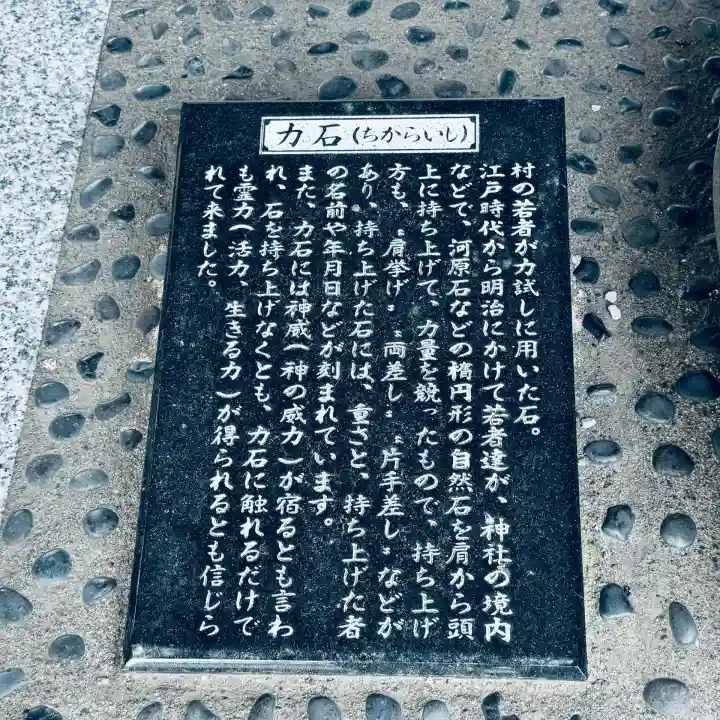 力石(ちからいし)
村の若者が力試しに用いた石。
江戸時代から明治にかけて若者達が、神社の境内
などで、河原石などの楕円形の自然石を肩から頭
上に持ち上げて、力量を競ったもので、持ち上げ
方も、〝肩挙げ〟〝両差し〟〝片手差し〟などが
あり、持ち上げた石には、重さと、持ち上げた者
の名前や年月日などが刻まれています。
また、力石には神威(神の威力)が宿るとも言わ
れ、石を持ち上げなくとも、力石に触れるだけで
も霊力(活力、生きる力)が得られるとも信じら
れて来ました。